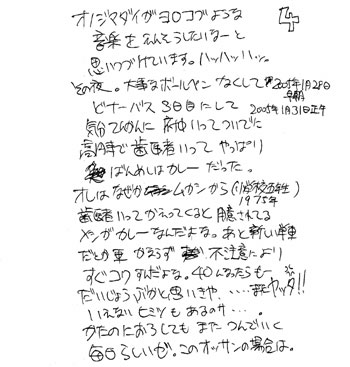 4
オノジマダイがヨロコブような
音楽をえんそうしたいなーと
思いつづけています。ハッハッハッ。
その夜。大事なボールペンなくして 2005年1月28日
早朝
ビナーバス 3日目にして 2005年1月31日正午
気分てんかんに 入って ついでに
高円寺で歯医者いって やっぱり
ばんめしはカレーだった。
オレはなぜか ムカシから (小学校五年生)
1975年
歯医者いって かえってくると 用意されてる
メシがカレーなんだよな。あと新しい車
だとか 単 かならず 不注意により
すぐコワすんだよな。40んなったらもー
だいじょうぶかと思いきや、……またヤッタ!!
いえないヒミツもあるのサ…。
かたのにおろしても また つんでいく
毎日らしいぜ。このオッサンの場合は。